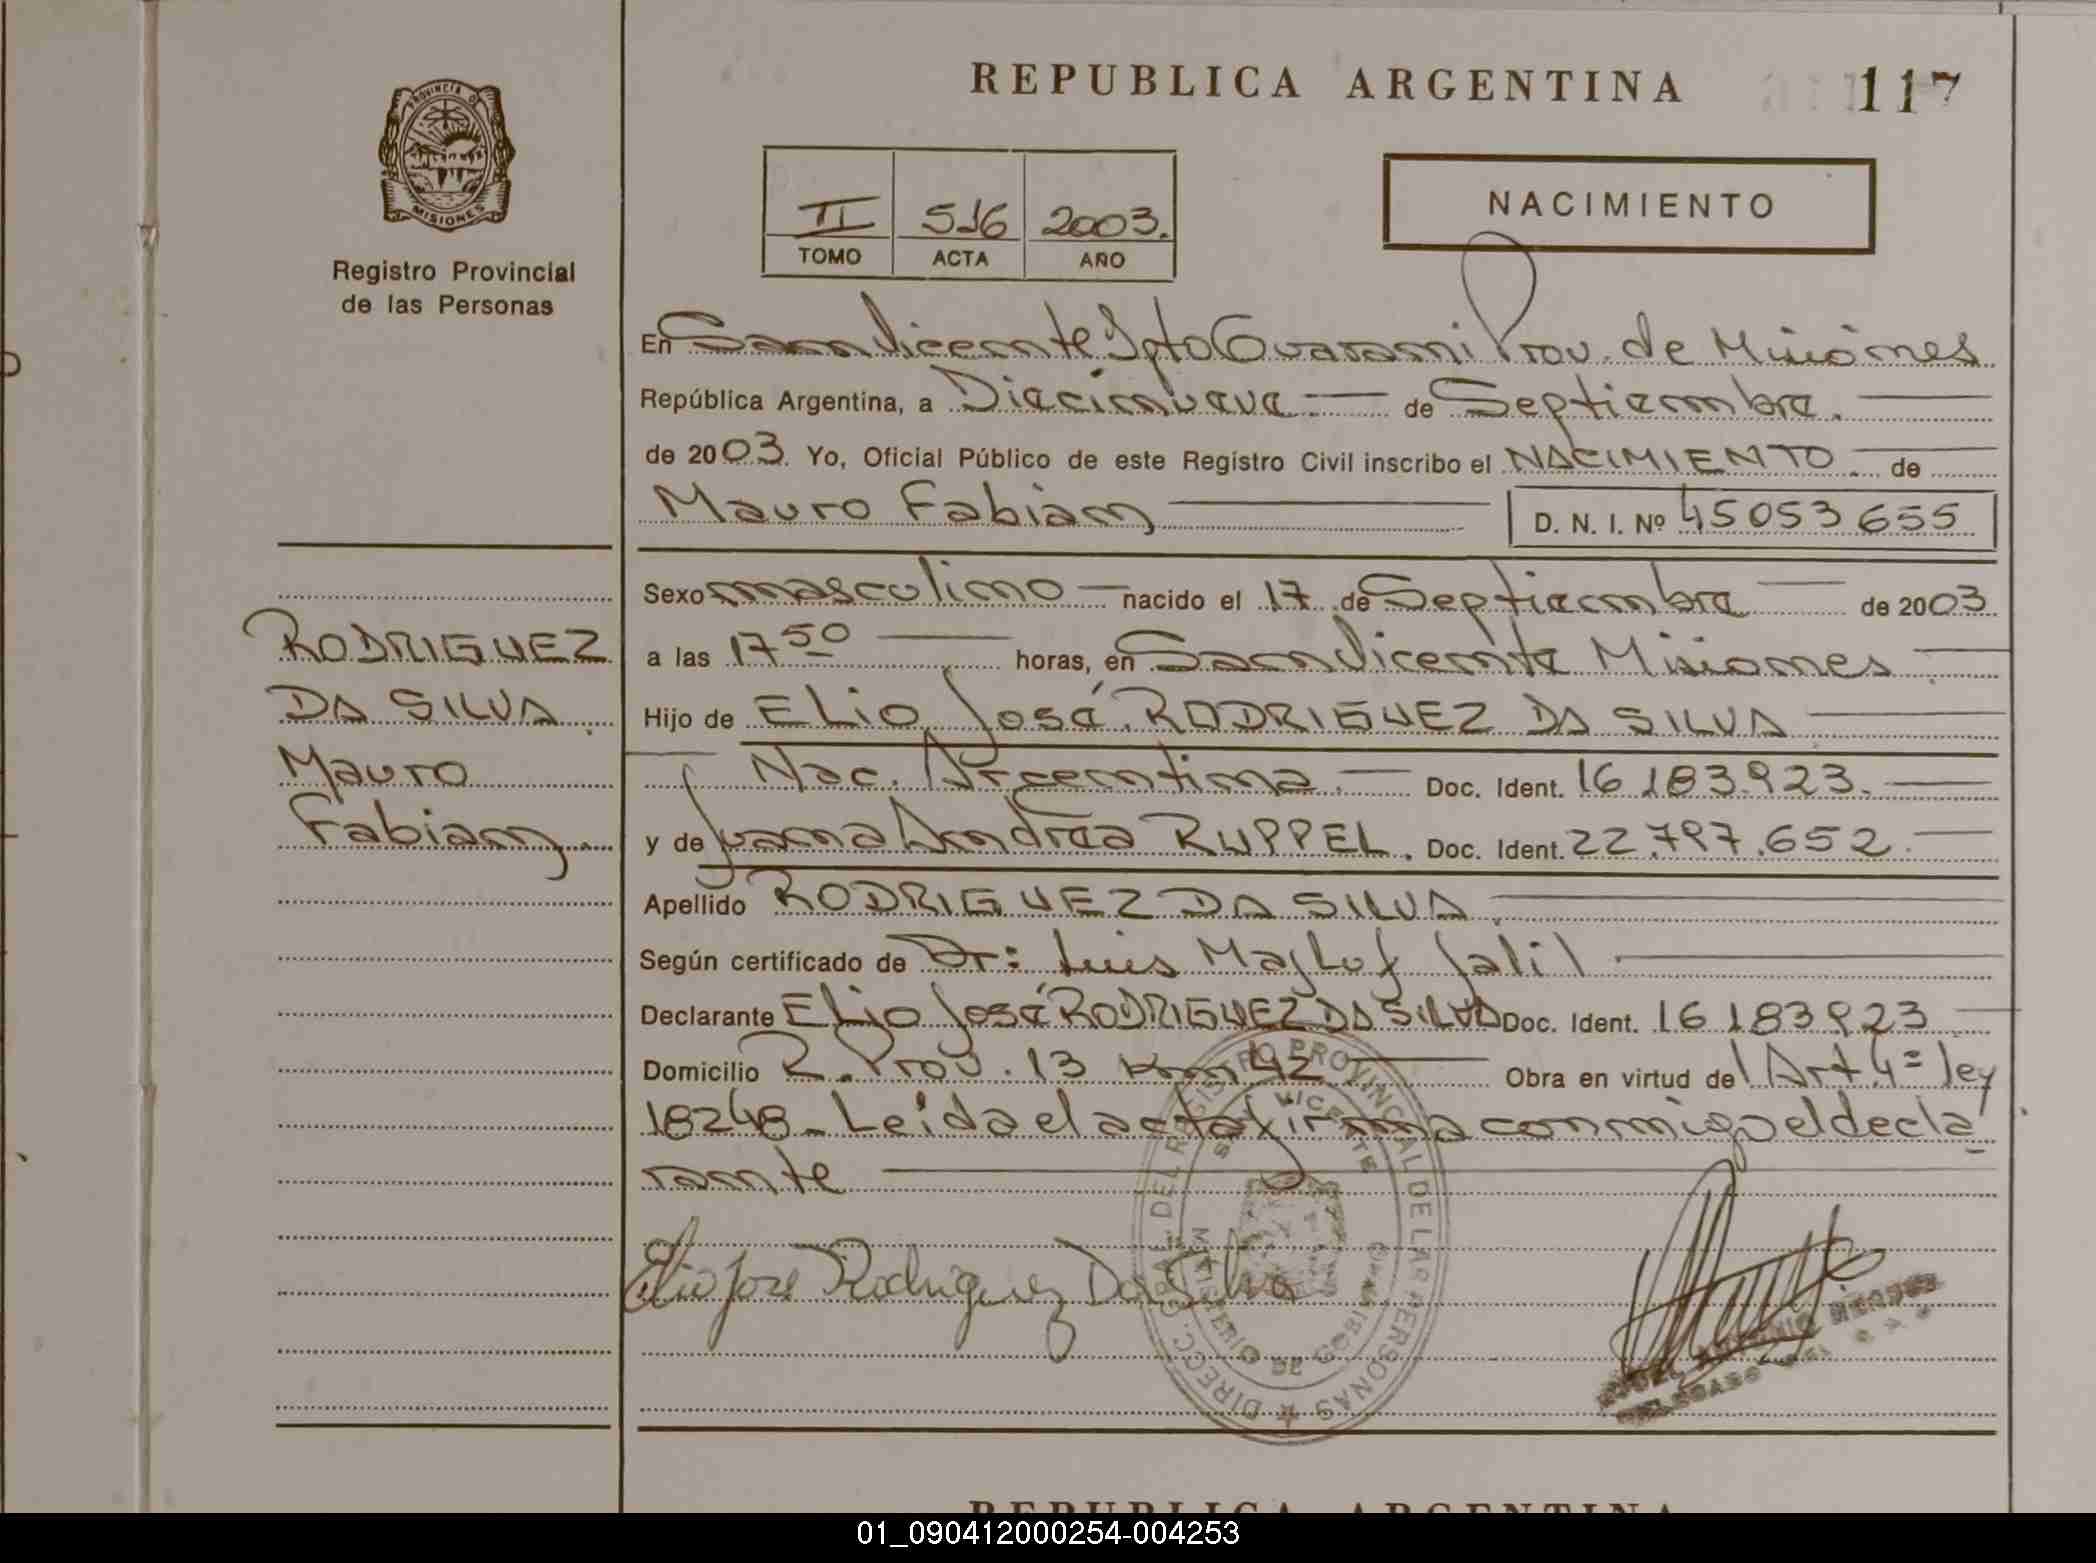 REPUBLICA ARGENTINA 117
PROVINCIA DE
MISIONES
Registro Provincial
de las Personas
II 516 2003.
TOMO ACTA AÑO
NACIMIENTO
En San Vicente Dpto Guarani Prov. de Misiones
República Argentina, a Diecinueve de Septiembre.
de 2003. Yo, Oficial Público de este Registro Civil inscribo el NACIMIENTO de
Mauro Fabian D. N. I. Nº 45053655
Sexo masculino nacido el 17 de Septiembre de 2003
a las 17 50 horas, en San Vicente Misiones
Hijo de Elio José RODRIGUEZ DA SILVA
Nac. Argentina. Doc. Ident. 16.183.923.
y de Juana Andrea RUPPEL. Doc. Ident. 22.797.652
Apellido RODRIGUEZ DA SILVA.
Según certificado de Dr: Luis Majluf Jalil
Declarante Elio José RODRIGUEZ DA SILVA Doc. Ident. 16.183.923
Domicilio R. Prov. 13 Km 42 Obra en virtud del Art 4º ley
18248_ Leida el acta firma conmigo el decla
rante
RODRIGUEZ
DA SILVA.
Mauro
Fabian.
Elio Jose Rodriguez Da Silva
DIRECC. GRAL. DEL REGISTRO PROVINCIAL DE LAS PERSONAS
SAN VICENTE
MINISTERIO DE GOBIERNO
REPUBLICA ARGENTINA
01_090412000254-004253